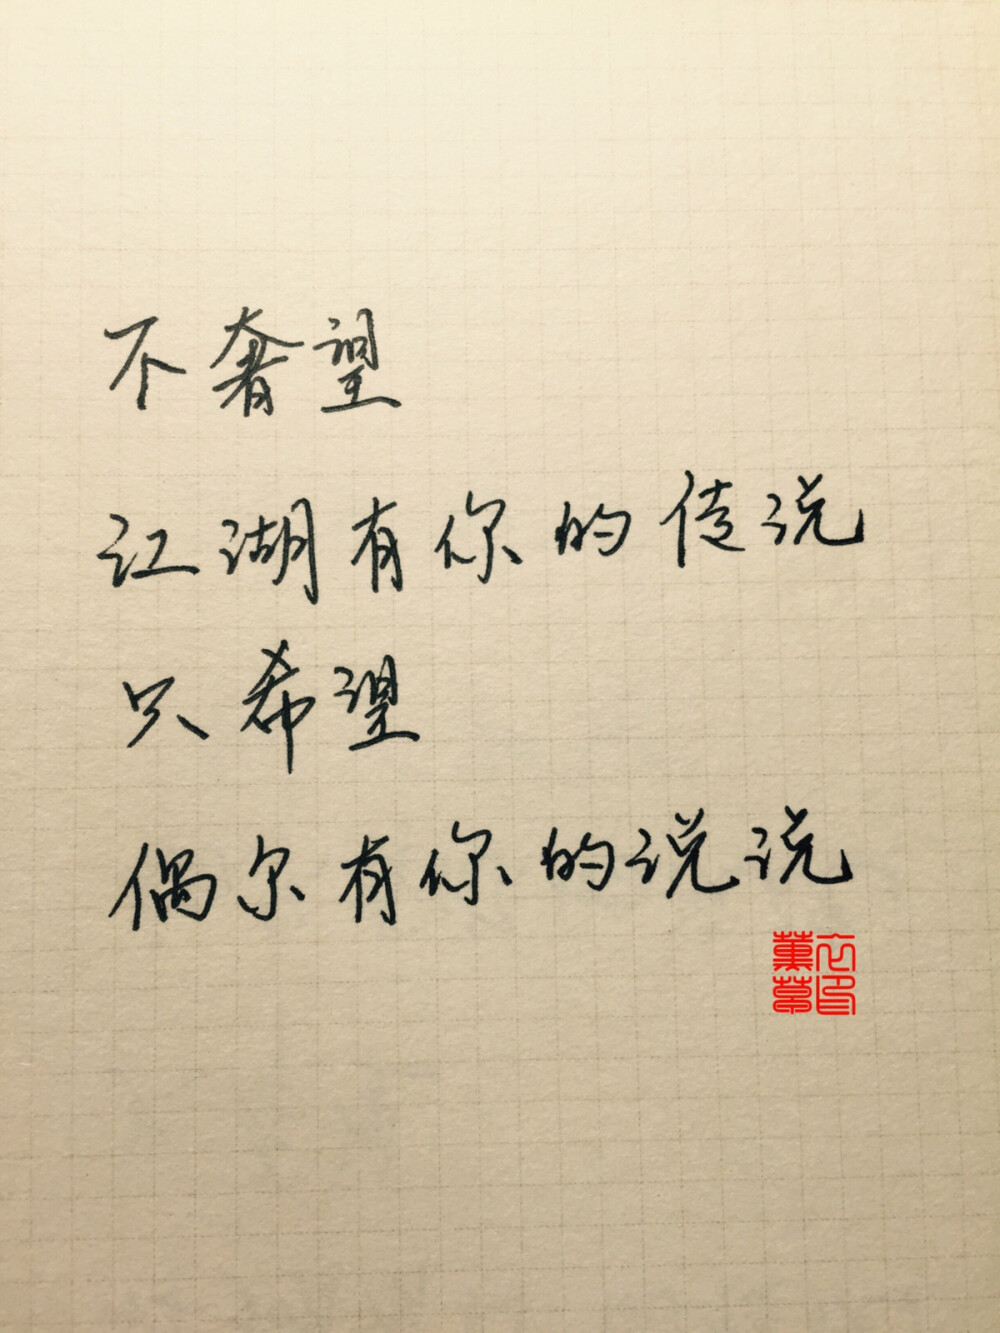 不奢望
江湖有你的传说
只希望
偶尔有你的说说